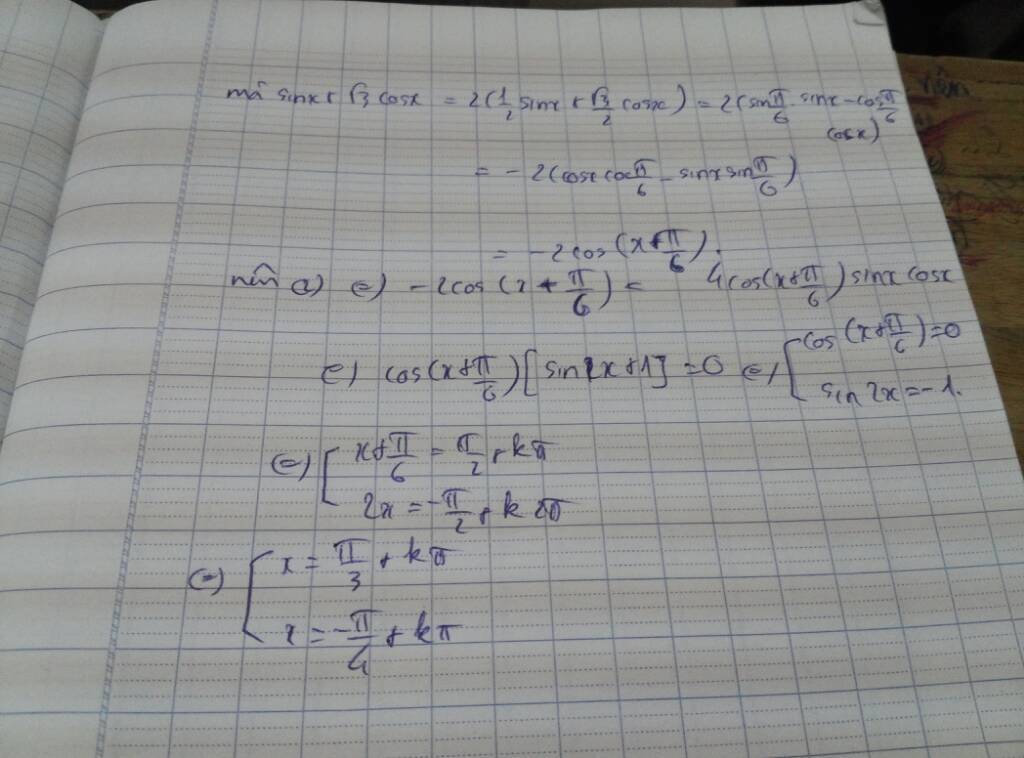 mà sinx + √3 cosx = 2(1/2 sinx + √3/2 cosx) = 2(sin π/6 sinx - cos π/6 cosx)
= -2(cosx cos π/6 - sinx sin π/6)
= -2cos(x + π/6).
nên 2) (=) -2cos(x + π/6) = 4cos(x + π/6) sinx cosx
(=) cos(x + π/6)[sin2x + 1] = 0 (=) [ cos(x + π/6) = 0
sin 2x = -1.
(=) [ x + π/6 = π/2 + kπ
2x = -π/2 + k2π
(=) [ x = π/3 + kπ
x = -π/4 + kπ